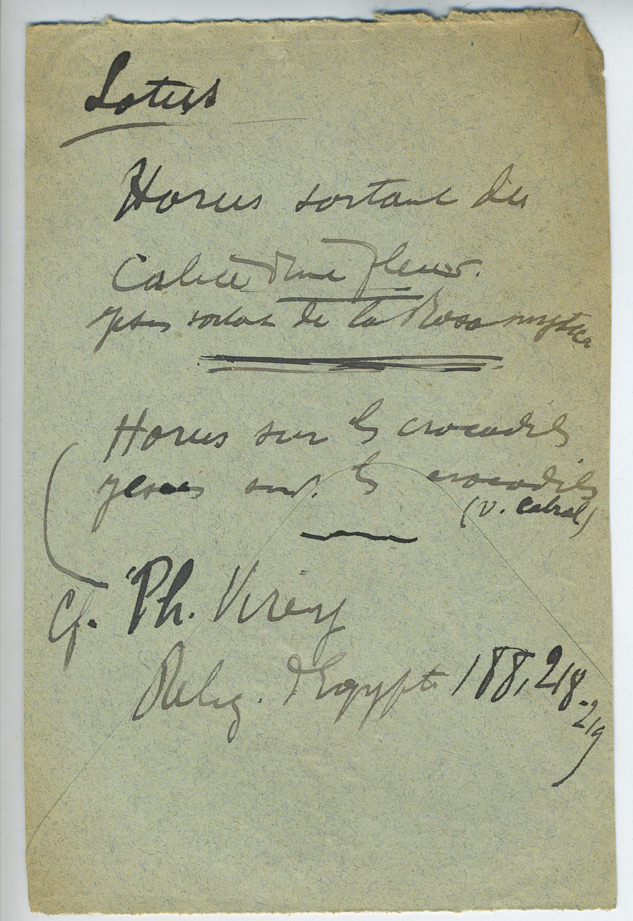 Lotus
Horus sortant du
Calice d'une fleur.
Jesus sortant de la Rosa mystica
Horus sur les crocodiles
Jesus sur les crocodiles
(v. Cabrol)
Cf. Ph. Virey
Relig. d'Egypte 188, 218-219